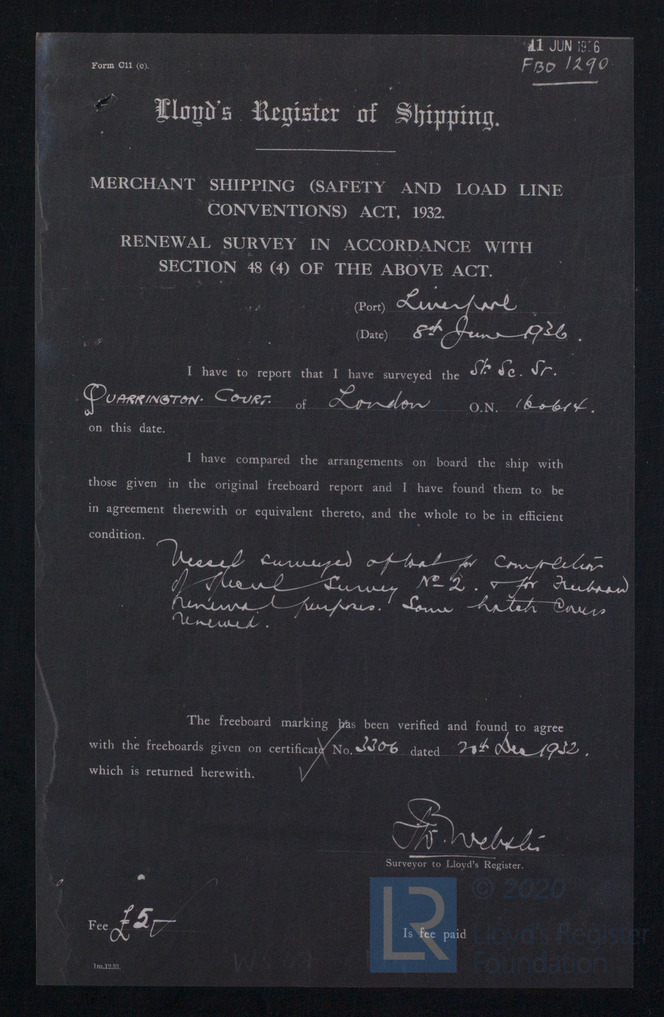 11 JUN 1936
Form C11 (c).
FBO 1290
Lloyd's Register of Shipping.
MERCHANT SHIPPING (SAFETY AND LOAD LINE
CONVENTIONS) ACT, 1932.
RENEWAL SURVEY IN ACCORDANCE WITH
SECTION 48 (4) OF THE ABOVE ACT.
(Port) Liverpool
(Date) 8th June 1936.
I have to report that I have surveyed the St. Sc. Sr.
QUARRINGTON COURT. of London O.N. 160614.
on this date.
I have compared the arrangements on board the ship with
those given in the original freeboard report and I have found them to be
in agreement therewith or equivalent thereto, and the whole to be in efficient
condition.
Vessel surveyed afloat for completion
of Special Survey No 2. & for Freeboard
renewal purposes. Some hatch covers
renewed.
The freeboard marking has been verified and found to agree
with the freeboards given on certificate No. 3306 dated 20th Dec 1932.
which is returned herewith.
Webster
Surveyor to Lloyd's Register.
Fee £5
Is fee paid
1m.12.33.
LR
© 2020
Lloyd's Register
Foundation